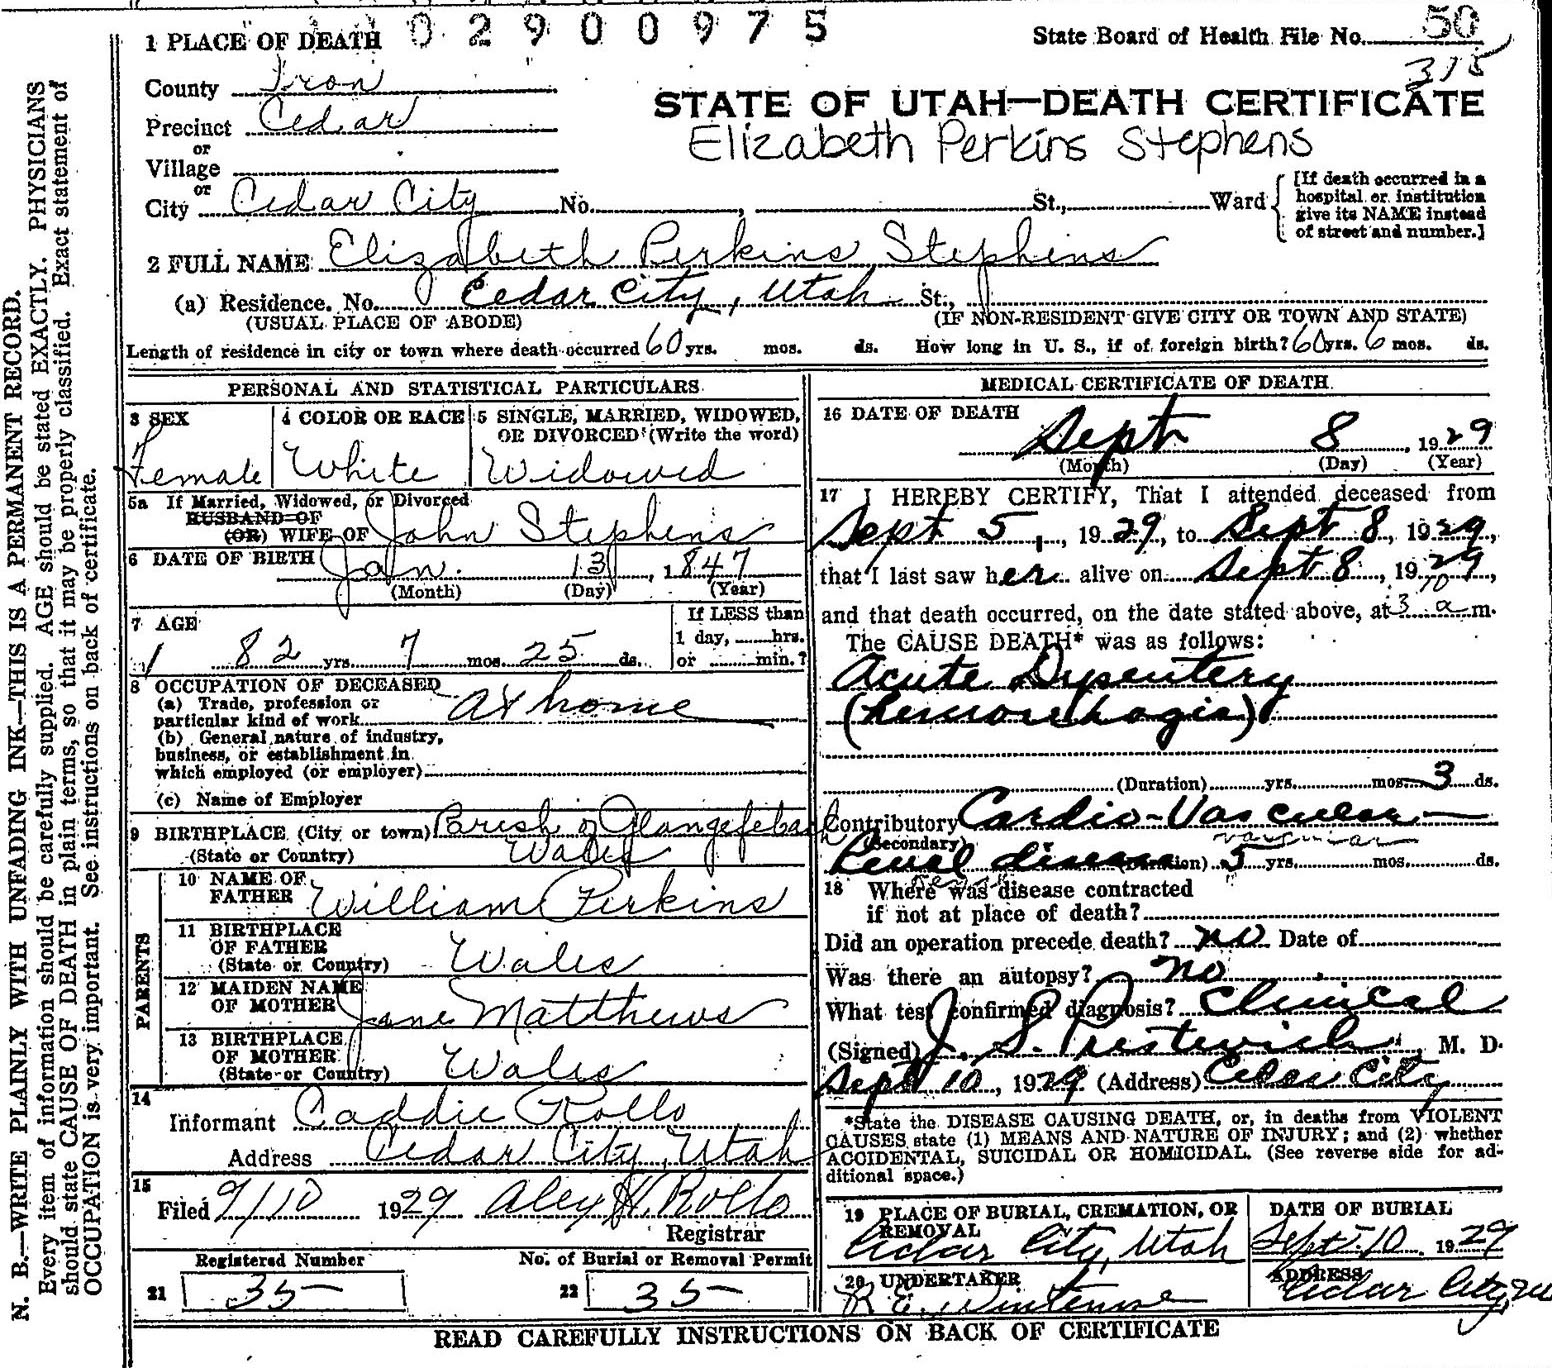 02900975
1 PLACE OF DEATH
State Board of Health File No. 50
315
County Iron
STATE OF UTAH—DEATH CERTIFICATE
Precinct Cedar
Elizabeth Perkins Stephens
or
Village
or
City Cedar City No. , St., Ward
[If death occurred in a
hospital or institution
give its NAME instead
of street and number.]
2 FULL NAME Elizabeth Perkins Stephens
(a) Residence. No. Cedar City, Utah St.,
(USUAL PLACE OF ABODE) (IF NON-RESIDENT GIVE CITY OR TOWN AND STATE)
Length of residence in city or town where death occurred 60 yrs. mos. ds. How long in U. S., if of foreign birth? 60 yrs. 6 mos. ds.
PERSONAL AND STATISTICAL PARTICULARS
3 SEX
Female
4 COLOR OR RACE
White
5 SINGLE, MARRIED, WIDOWED,
OR DIVORCED (Write the word)
Widowed
5a If Married, Widowed, or Divorced
HUSBAND OF
(OR) WIFE OF John Stephens
6 DATE OF BIRTH Jan. 13, 1847
(Month) (Day) (Year)
7 AGE
82 yrs. 7 mos. 25 ds.
If LESS than
1 day, hrs.
or min.?
8 OCCUPATION OF DECEASED
(a) Trade, profession or
particular kind of work At home
(b) General nature of industry,
business, or establishment in
which employed (or employer)
(c) Name of Employer
9 BIRTHPLACE (City or town) Parish of
(State or Country) Wales
PARENTS
10 NAME OF
FATHER William Perkins
11 BIRTHPLACE
OF FATHER
(State or Country) Wales
12 MAIDEN NAME
OF MOTHER Jane Matthews
13 BIRTHPLACE
OF MOTHER
(State or Country) Wales
14
Informant Caddie Rollo
Address Cedar City, Utah
15
Filed 9/10 1929 Alex H. Rollo
Registrar
Registered Number
21 35
No. of Burial or Removal Permit
22 35
MEDICAL CERTIFICATE OF DEATH
16 DATE OF DEATH
Sept 8, 1929
(Month) (Day) (Year)
17 I HEREBY CERTIFY, That I attended deceased from
Sept 5, 1929, to Sept 8, 1929,
that I last saw her alive on Sept 8, 1929,
and that death occurred, on the date stated above, at 3 10 a m.
The CAUSE DEATH* was as follows:
Acute Dysentery
(hemorrhagic)
(Duration) yrs. mos. 3 ds.
Contributory Cardio-Vascular
(Secondary)
vascular
Renal disease (Duration) 5 yrs. mos. ds.
renal
18 Where was disease contracted
if not at place of death?
Did an operation precede death? no Date of
Was there an autopsy? no
What test confirmed diagnosis? Clinical
(Signed) J. S. Prestwich, M. D.
Sept 10, 1929 (Address) Cedar City
*State the DISEASE CAUSING DEATH, or, in deaths from VIOLENT
CAUSES state (1) MEANS AND NATURE OF INJURY; and (2) whether
ACCIDENTAL, SUICIDAL OR HOMICIDAL. (See reverse side for ad-
ditional space.)
19 PLACE OF BURIAL, CREMATION, OR
REMOVAL
Cedar City, Utah
DATE OF BURIAL
Sept 10 1929
20 UNDERTAKER
R E.
ADDRESS
Cedar City,
READ CAREFULLY INSTRUCTIONS ON BACK OF CERTIFICATE
N. B.—WRITE PLAINLY WITH UNFADING INK—THIS IS A PERMANENT RECORD.
Every item of information should be carefully supplied. AGE should be stated EXACTLY. PHYSICIANS
should state CAUSE OF DEATH in plain terms, so that it may be properly classified. Exact statement of
OCCUPATION is very important. See instructions on back of certificate.